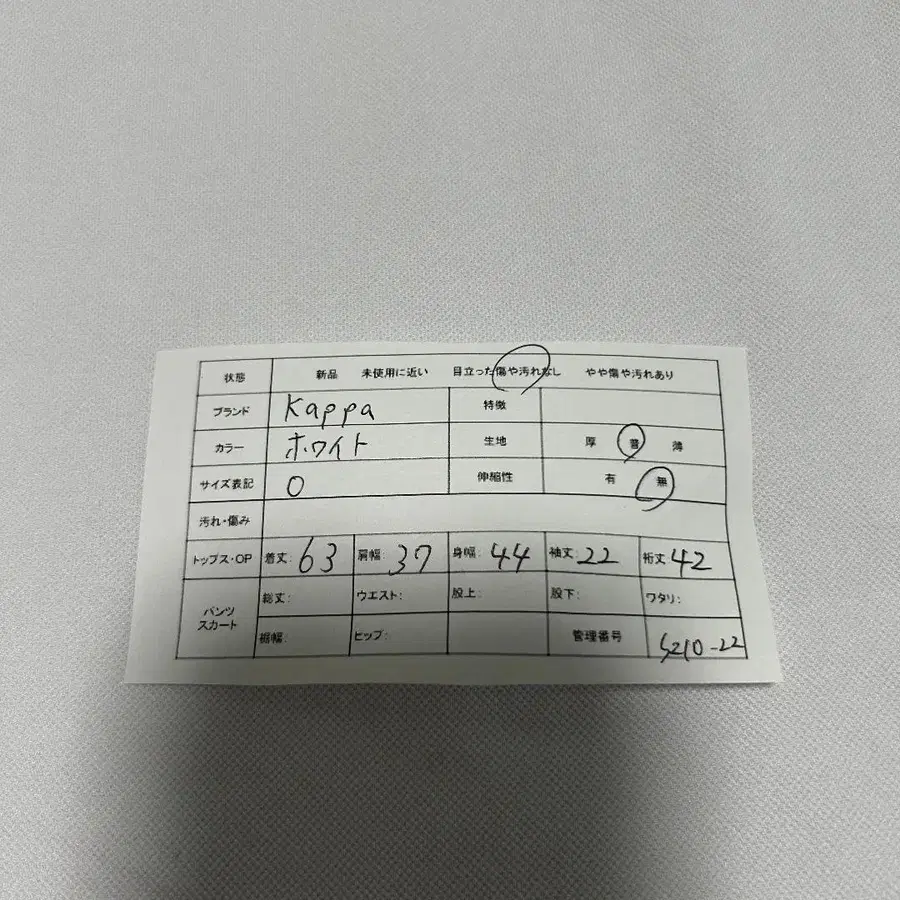 状態 新品 未使用に近い 目立った傷や汚れなし やや傷や汚れあり
ブランド Kappa 特徴
カラー ホワイト 生地 厚 普 薄
サイズ表記 0 伸縮性 有 無
汚れ・傷み
トップス・OP 着丈: 63 肩幅: 37 身幅: 44 袖丈: 22 裄丈: 42
パンツ スカート 総丈: ウエスト: 股上: 股下: ワタリ:
裾幅: ヒップ: 管理番号 S210-22